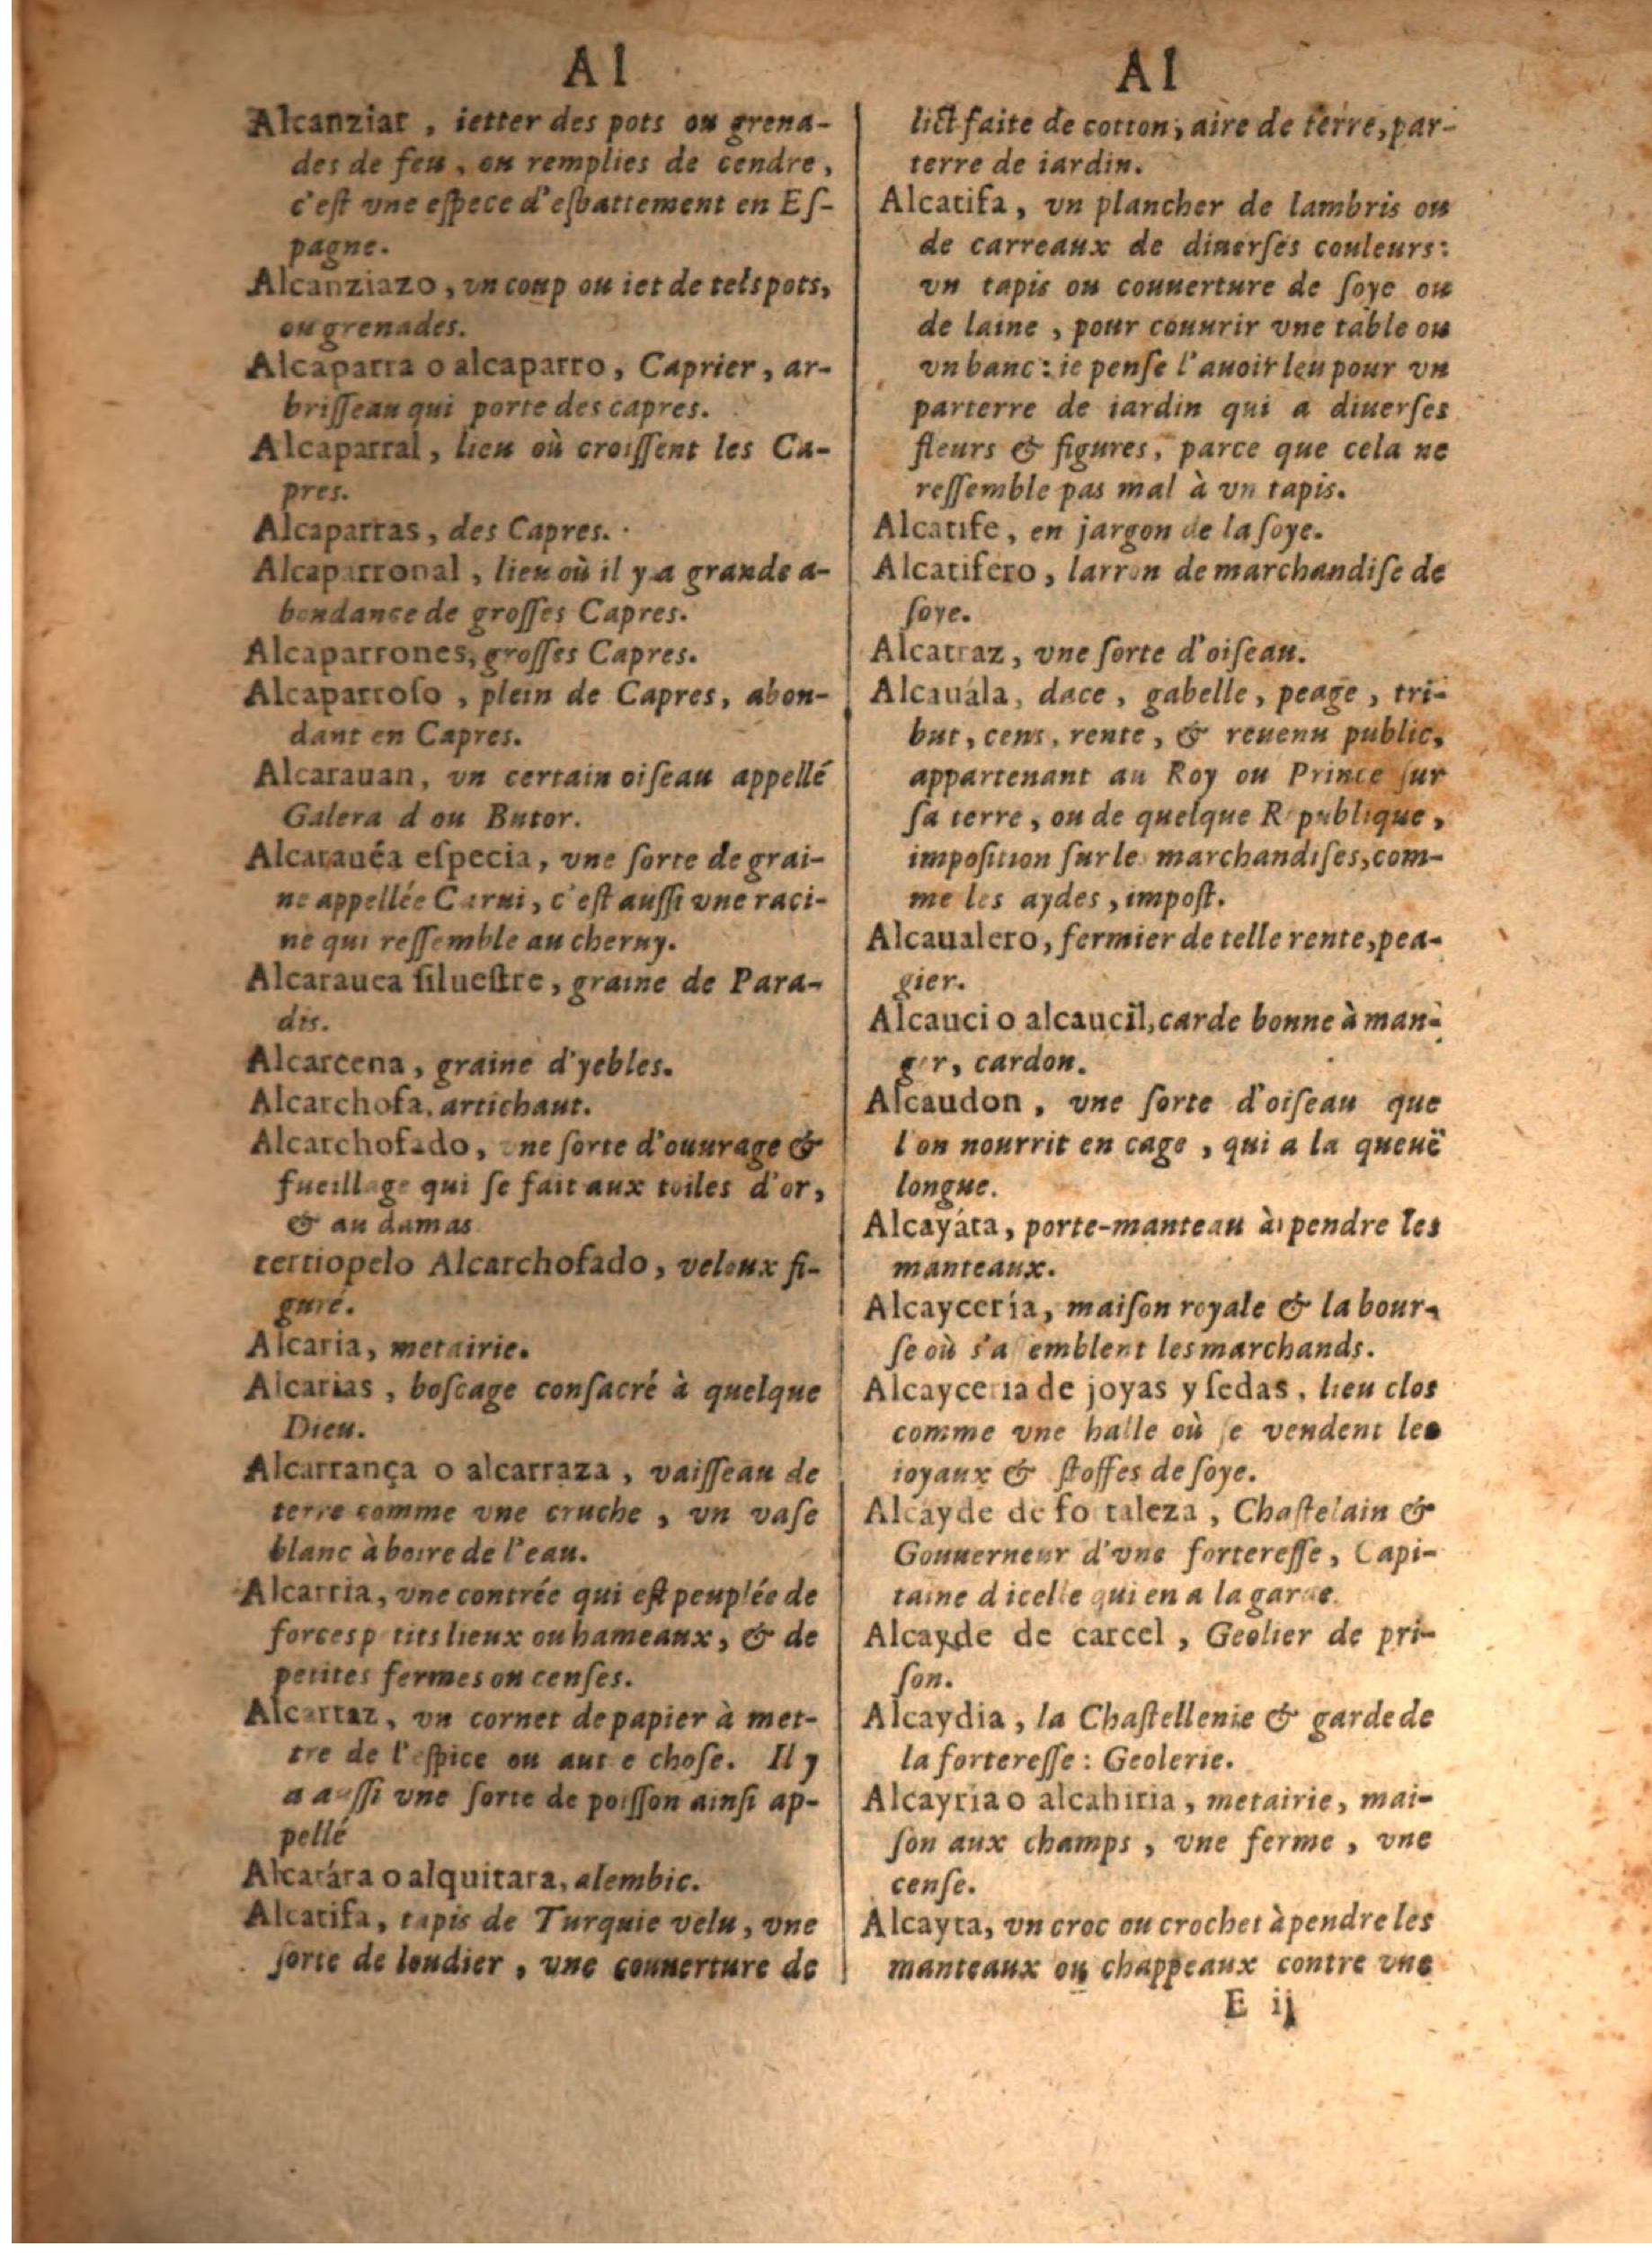 Al
Alcanziar, ietter des pots ou grena-
des de feu, ou remplies de cendre,
c'eſt vne eſpece d'eſbattement en Eſ-
pagne.
Alcanziazo, vn coup ou iet de tels pots,
ou grenades.
Alcaparra o alcaparro, Caprier, ar-
briſſeau qui porte des capres.
Alcaparral, lieu où croiſſent les Ca-
pres.
Alcaparras, des Capres.
Alcaparronal, lieu où il y a grande a-
bondance de groſſes Capres.
Alcaparrones, groſſes Capres.
Alcaparroſo, plein de Capres, abon-
dant en Capres.
Alcarauan, vn certain oiſeau appellé
Galera d ou Butor.
Alcarauéa eſpecia, vne ſorte de grai-
ne appellée Carui, c'eſt auſſi vne raci-
ne qui reſſemble au cheruy.
Alcarauea ſilueſtre, graine de Para-
dis.
Alcarcena, graine d'yebles.
Alcarchofa, artichaut.
Alcarchofado, vne ſorte d'ouurage &
fueillage qui ſe fait aux toiles d'or,
& au damas
tertiopelo Alcarchofado, veloux fi-
guré.
Alcaria, metairie.
Alcarias, boſcage conſacré à quelque
Dieu.
Alcarrança o alcarraza, vaiſſeau de
terre comme vne cruche, vn vaſe
blanc à boire de l'eau.
Alcarria, vne contrée qui eſt peuplée de
forces p tits lieux ou hameaux, & de
petites fermes ou cenſes.
Alcartaz, vn cornet de papier à met-
tre de l'eſpice ou aut e choſe. Il y
a auſſi vne ſorte de poiſſon ainſi ap-
pellé
Alcatára o alquitara, alembic.
Alcatifa, tapis de Turquie velu, vne
ſorte de loudier, vne couuerture de
Al
lict faite de cotton, aire de terre, par-
terre de iardin.
Alcatifa, vn plancher de lambris ou
de carreaux de diuerſes couleurs:
vn tapis ou couuerture de ſoye ou
de laine, pour couurir vne table ou
vn banc: ie penſe l'auoir leu pour vn
parterre de iardin qui a diuerſes
fleurs & figures, parce que cela ne
reſſemble pas mal à vn tapis.
Alcatife, en jargon de la ſoye.
Alcatifero, larron de marchandiſe de
ſoye.
Alcatraz, vne ſorte d'oiſeau.
Alcauála, dace, gabelle, peage, tri-
but, cens, rente, & reuenu public,
appartenant au Roy ou Prince ſur
ſa terre, ou de quelque R publique,
impoſition ſur le marchandiſes, com-
me les aydes, impoſt.
Alcaualero, fermier de telle rente, pea-
gier.
Alcauci o alcaucil, carde bonne à man-
ger, cardon.
Alcaudon, vne ſorte d'oiſeau que
l'on nourrit en cage, qui a la queuë
longue.
Alcayáta, porte-manteau à pendre les
manteaux.
Alcaycería, maiſon royale & la bour-
ſe où s'a emblent les marchands.
Alcayceria de joyas y ſedas, lieu clos
comme vne halle où ſe vendent les
ioyaux & ſtoffes de ſoye.
Alcayde de fo taleza, Chaſtelain &
Gouuerneur d'vne fortereſſe, Capi-
taine d icelle qui en a la garde.
Alcayde de carcel, Geolier de pri-
ſon.
Alcaydia, la Chaſtellenie & garde de
la fortereſſe: Geolerie.
Alcayria o alcahiria, metairie, mai-
ſon aux champs, vne ferme, vne
cenſe.
Alcayta, vn croc ou crochet à pendre les
manteaux ou chappeaux contre vne
E ij